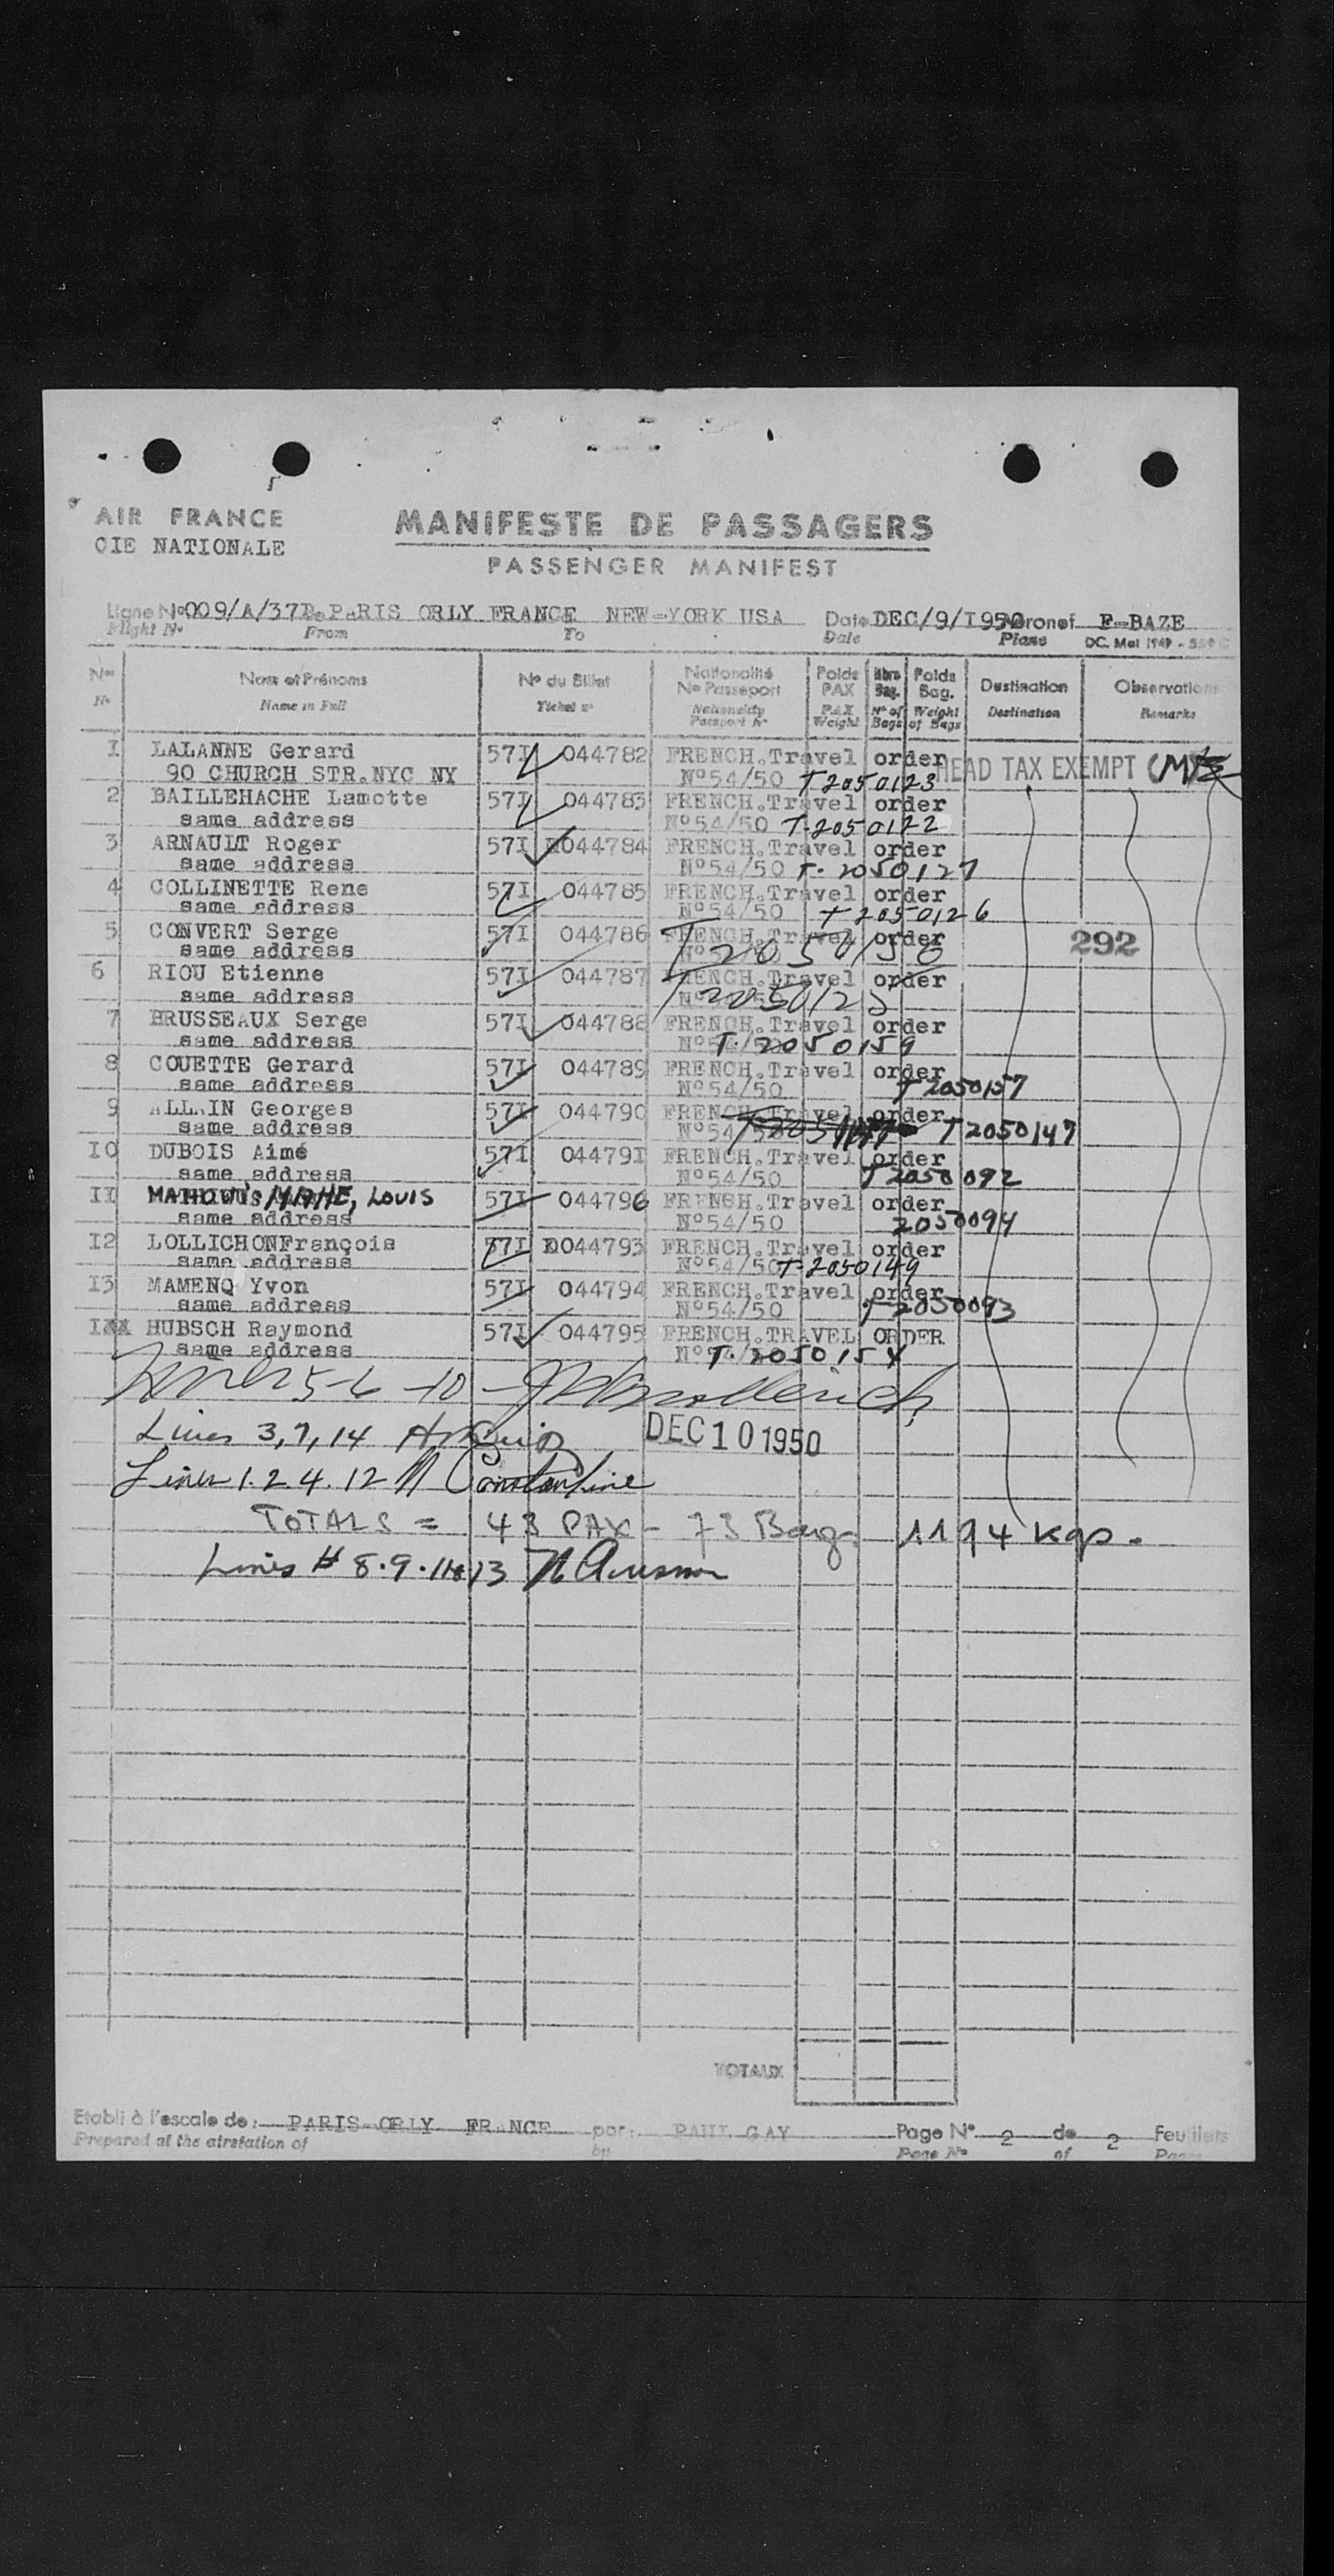 AIR FRANCE
CIE NATIONALE
MANIFESTE DE PASSAGERS
PASSENGER MANIFEST
Ligne No 009/A/37 De PARIS ORLY FRANCE NEW-YORK USA Date DEC/9/I950 Aéronef F-BAZE
Flight No From To Date Plane OC. Mai 1949 - 559 C
Nos Nom et Prénoms No du Billet Nationalité No Passeport Poids PAX Nbre Bag. Poids Bag. Destination Observations
No Name in Full Ticket no Nationality Passport No PAX Weight No of Bags Weight of Bags Destination Remarks
I LALANNE Gerard 57I 044782 FRENCH.Travel order
90 CHURCH STR.NYC NY No54/50 T2050123 HEAD TAX EXEMPT (M)
2 BAILLEHACHE Lamotte 57I 044783 FRENCH.Travel order
same address No54/50 T-2050122
3 ARNAULT Roger 57I 044784 FRENCH.Travel order
same address No54/50 T-2050127
4 COLLINETTE Rene 57I 044785 FRENCH.Travel order
same address No54/50 T2050126
5 CONVERT Serge 57I 044786 FRENCH.Travel order
same address 292
6 RIOU Etienne 57I 044787 FRENCH.Travel order
same address
7 BRUSSEAUX Serge 57I 044788 FRENCH.Travel order
same address No54/50 T-2050159
8 COUETTE Gerard 57I 044789 FRENCH.Travel order
same address No54/50 T2050157
9 ALLAIN Georges 57I 044790 FRENCH.Travel order
same address No54/50 T2050147
I0 DUBOIS Aimé 57I 04479I FRENCH.Travel order
same address No54/50 T2050092
II MAHE, LOUIS 57I 044796 FRENCH.Travel order
same address No54/50 2050094
I2 LOLLICHONFrançois 57I 044793 FRENCH.Travel order
same address No54/50 T-2050149
I3 MAMENQ Yvon 57I 044794 FRENCH.Travel order
same address No54/50 T2050093
HUBSCH Raymond 57I 044795 FRENCH.TRAVEL ORDER
same address T-205015
5-6-10
Lines 3,7,14 DEC 10 1950
Lines 1.2.4.12 N Constantine
TOTALS = 43 PAX - 73 Bags 1194 Kgs.
Lines # 8.9.11&13
TOTAUX
Etabli à l'escale de: PARIS-ORLY FRANCE par: PAUL GAY Page No 2 de 2 Feuillets
Prepared at the airstation of by Page No of Pages